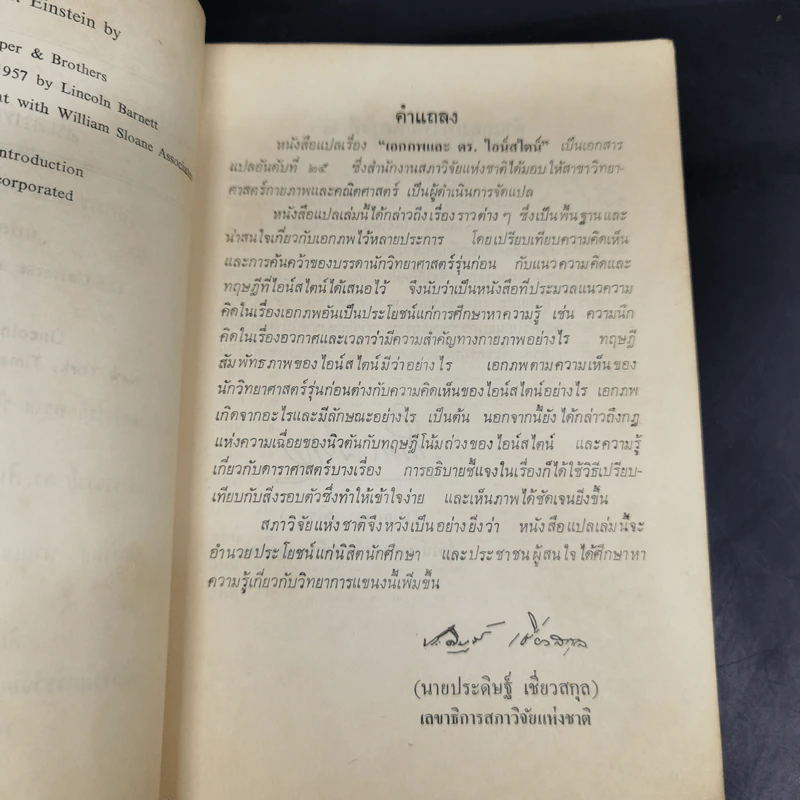 Einstein by
per & Brothers
1957 by Lincoln Barnett
nt with William Sloane Associates
ntroduction
corporated
คำแถลง
หนังสือแปลเรื่อง “เอกภพและ ดร. ไอน์สไตน์” เป็นเอกสาร
แปลอันดับที่ ๒๕ ซึ่งสำนักงานสภาวิจัยแห่งชาติได้มอบให้สาขาวิทยา-
ศาสตร์กายภาพและคณิตศาสตร์ เป็นผู้ดำเนินการจัดแปล
หนังสือแปลเล่มนี้ได้กล่าวถึงเรื่องราวต่าง ๆ ซึ่งเป็นพื้นฐานและ
น่าสนใจเกี่ยวกับเอกภพไว้หลายประการ โดยเปรียบเทียบความคิดเห็น
และการค้นคว้าของบรรดานักวิทยาศาสตร์รุ่นก่อน กับแนวความคิดและ
ทฤษฎีที่ไอน์สไตน์ได้เสนอไว้ จึงนับว่าเป็นหนังสือที่ประมวลแนวความ
คิดในเรื่องเอกภพอันเป็นประโยชน์แก่การศึกษาหาความรู้ เช่น ความนึก
คิดในเรื่องอวกาศและเวลาว่ามีความสำคัญทางกายภาพอย่างไร ทฤษฎี
สัมพัทธภาพของไอน์สไตน์มีว่าอย่างไร เอกภพตามความเห็นของ
นักวิทยาศาสตร์รุ่นก่อนต่างกับความคิดเห็นของไอน์สไตน์อย่างไร เอกภพ
เกิดจากอะไรและมีลักษณะอย่างไร เป็นต้น นอกจากนี้ยังได้กล่าวถึงกฎ
แห่งความเฉื่อยของนิวตันกับทฤษฎีโน้มถ่วงของไอน์สไตน์ และความรู้
เกี่ยวกับดาราศาสตร์บางเรื่อง การอธิบายชี้แจงในเรื่องก็ได้ใช้วิธีเปรียบ-
เทียบกับสิ่งรอบตัวซึ่งทำให้เข้าใจง่าย และเห็นภาพได้ชัดเจนยิ่งขึ้น
สภาวิจัยแห่งชาติจึงหวังเป็นอย่างยิ่งว่า หนังสือแปลเล่มนี้จะ
อำนวยประโยชน์แก่นิสิตนักศึกษา และประชาชนผู้สนใจได้ศึกษาหา
ความรู้เกี่ยวกับวิทยาการแขนงนี้เพิ่มขึ้น
(นายประดิษฐ์ เชี่ยวสกุล)
เลขาธิการสภาวิจัยแห่งชาติ